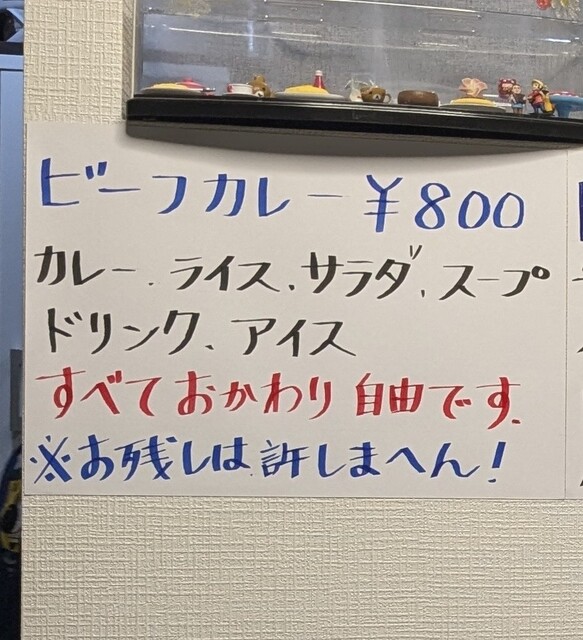 ビーフカレー ¥800
カレー、ライス、サラダ、スープ
ドリンク、アイス
すべておかわり自由です。
※お残しは許しまへん!